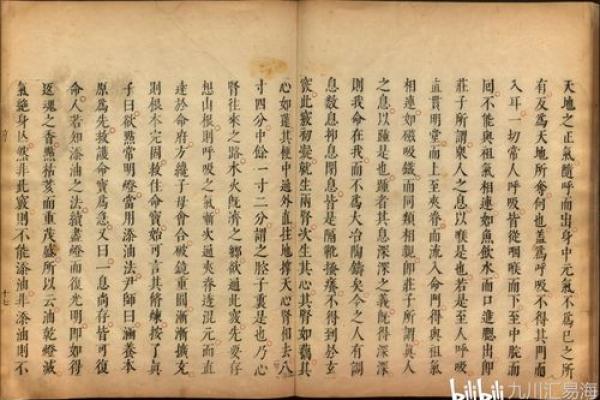 天地之正氣隨呼而出身中元氣不為巳之所
有反為天地所奪何也蓋為呼吸不得其門而
入耳一切常人呼吸皆從咽喉而下至中脘而
回不能與祖氣相連如魚飲水而口進腮出即
莊子所謂衆人之息以喉是也若是至人呼吸
直貫明堂而上至夾脊而流入命門得與祖氣
相連如磁吸鐵而同類相親即莊子所謂真人
之息以踵是也踵者其息深深之義既得深深
則我命在我而不為大冶陶鑄矣今之人有調
息數息抑息閉息皆是隔靴搔癢不得到於玄
竅此竅初凝就生兩腎次生其心其腎如藕其
心如蓮其梗中通外直拄地撐天心腎相去八
寸四分中餘一寸二分謂之腔子裏是也乃心
腎往來之路水火既濟之鄉欲通此竅先要存
想山根則呼吸之氣漸次通夾脊透混元而直
達於命府方纔子母會合破鏡重圓漸漸擴充
則根本完固救住命寶始可言其修煉按了真
子曰欲點常明燈當用添油法尹師曰涵養本
原為先救護命寶為急又曰一息尚存皆可復
命人若知添油之法續盡燈而復光明即如得
返魂之香點枯荄而重茂盛所以云油乾燈滅
氣絕身亡然非此竅則不能添油非添油則不
十七
bilibili 九川汇易海